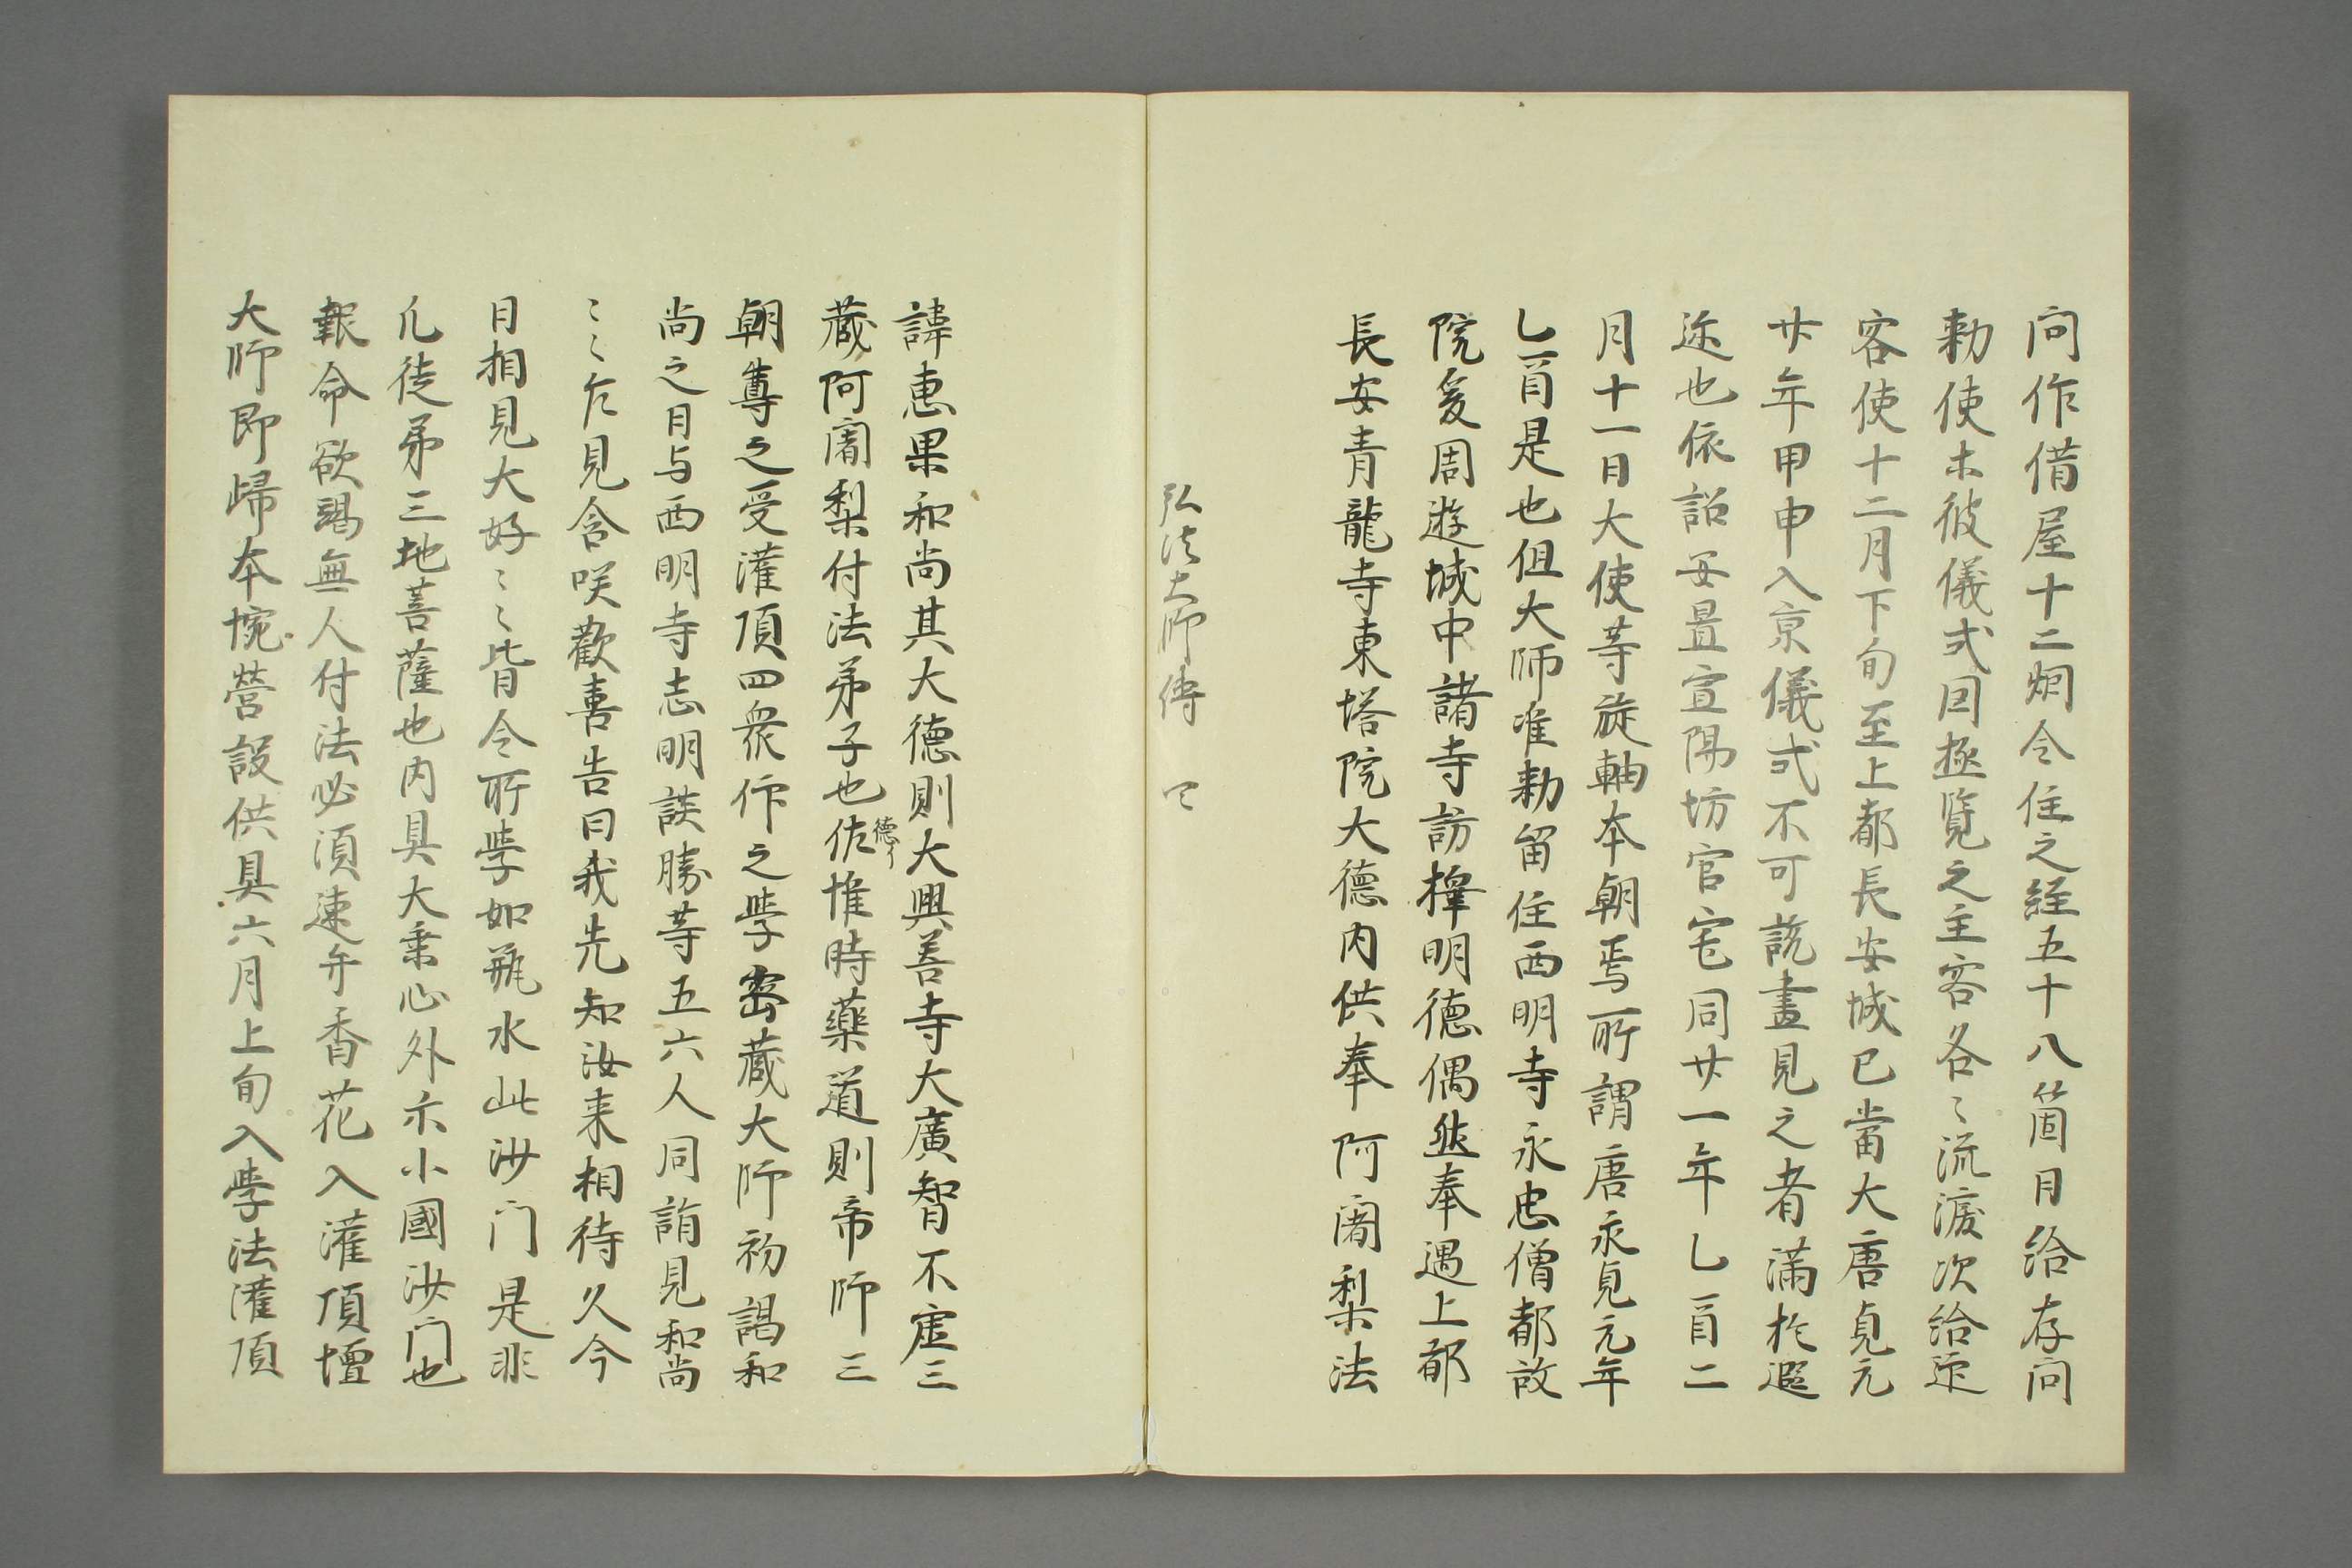 向作借屋十二烟令住之経五十八箇月給存問
勅使ホ彼儀式因極覧之主客各〻流涙次給迎
客使十二月下旬至上都長安城已當大唐貞元
廿年甲申入京儀式不可說盡見之者滿於遐
迩也依詔安置宣陽坊官宅同廿一年乙酉二
月十一日大使等旋軸本朝焉所謂唐永貞元年
乙酉是也但大師准勅留住西明寺永忠僧都故
院爰周遊城中諸寺訪擇明德偶然奉遇上都
長安青龍寺東塔院大德内供奉阿闍梨法
弘法大師傳 四
諱惠果和尚其大德則大興善寺大廣智不空三
蔵阿闍梨付法弟子也佐惟時藥道則帝師三
德イ
朝尊之受灌頂四衆仰之學密蔵大師初謁和
尚之日与西明寺志明談勝等五六人同詣見和尚
〻〻乍見含咲歡喜告曰我先知汝来相待久今
日相見大好〻〻皆令所學如瓶水此沙门是非
凡徒弟三地菩薩也内具大乗心外示小國沙门也
報命欲竭無人付法必須速弁香花入灌頂壇
大師即歸本院營設供具六月上旬入學法灌頂